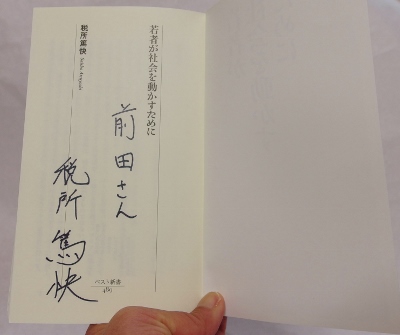 若者が社会を動かすために
税所篤快
前田さん
税所篤快
ベスト新書